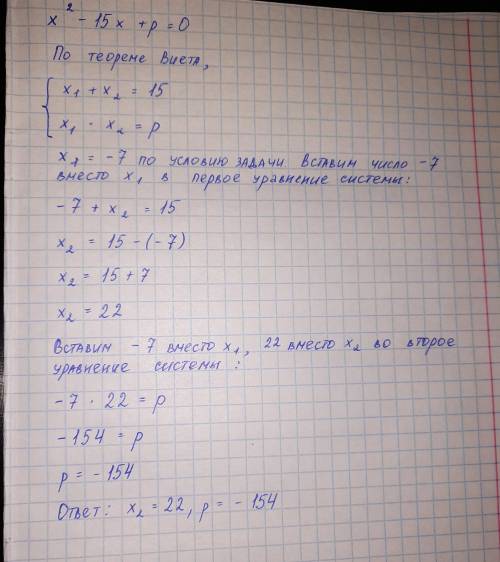 x² - 15x + p = 0
По теореме Виета,
x₁ + x₂ = 15
x₁ · x₂ = p
x₁ = -7 по условию задачи. Вставим число -7
вместо x₁ в первое уравнение системы:
-7 + x₂ = 15
x₂ = 15 - (-7)
x₂ = 15 + 7
x₂ = 22
Вставим -7 вместо x₁, 22 вместо x₂ во второе
уравнение системы:
-7 · 22 = p
-154 = p
p = -154
Ответ: x₂ = 22, p = -154